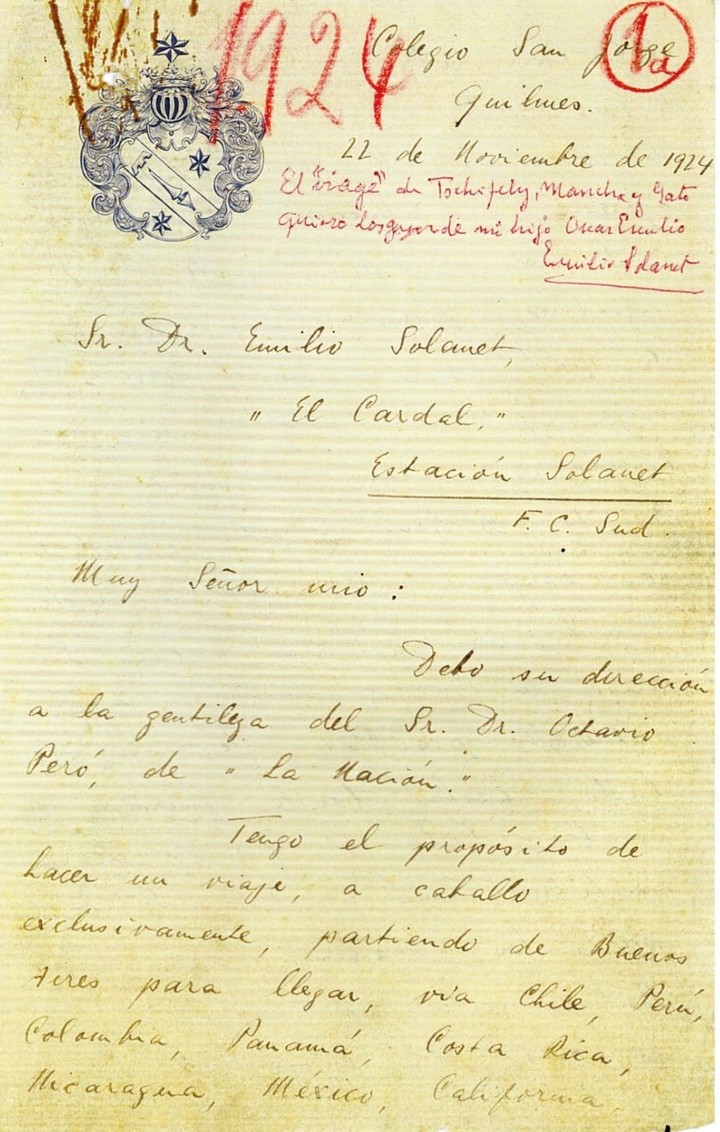 1924
Colegio San Jorge
1a
Quilmes.
22 de Noviembre de 1924
El "viage" de Tschifely, Mancha y Gato
quiero los guarde mi hijo Oscar Emilio
Emilio Solanet
Sr. Dr. Emilio Solanet,
" El Cardal,"
Estación Solanet
F. C. Sud.
Muy Señor mio :
Debo su dirección
a la gentileza del Sr. Dr. Octavio
Peró, de " La Nación."
Tengo el propósito de
hacer un viaje, a caballo
exclusivamente, partiendo de Buenos
Aires para llegar, via Chile, Perú,
Colombia, Panamá, Costa Rica,
Nicaragua, México, California,